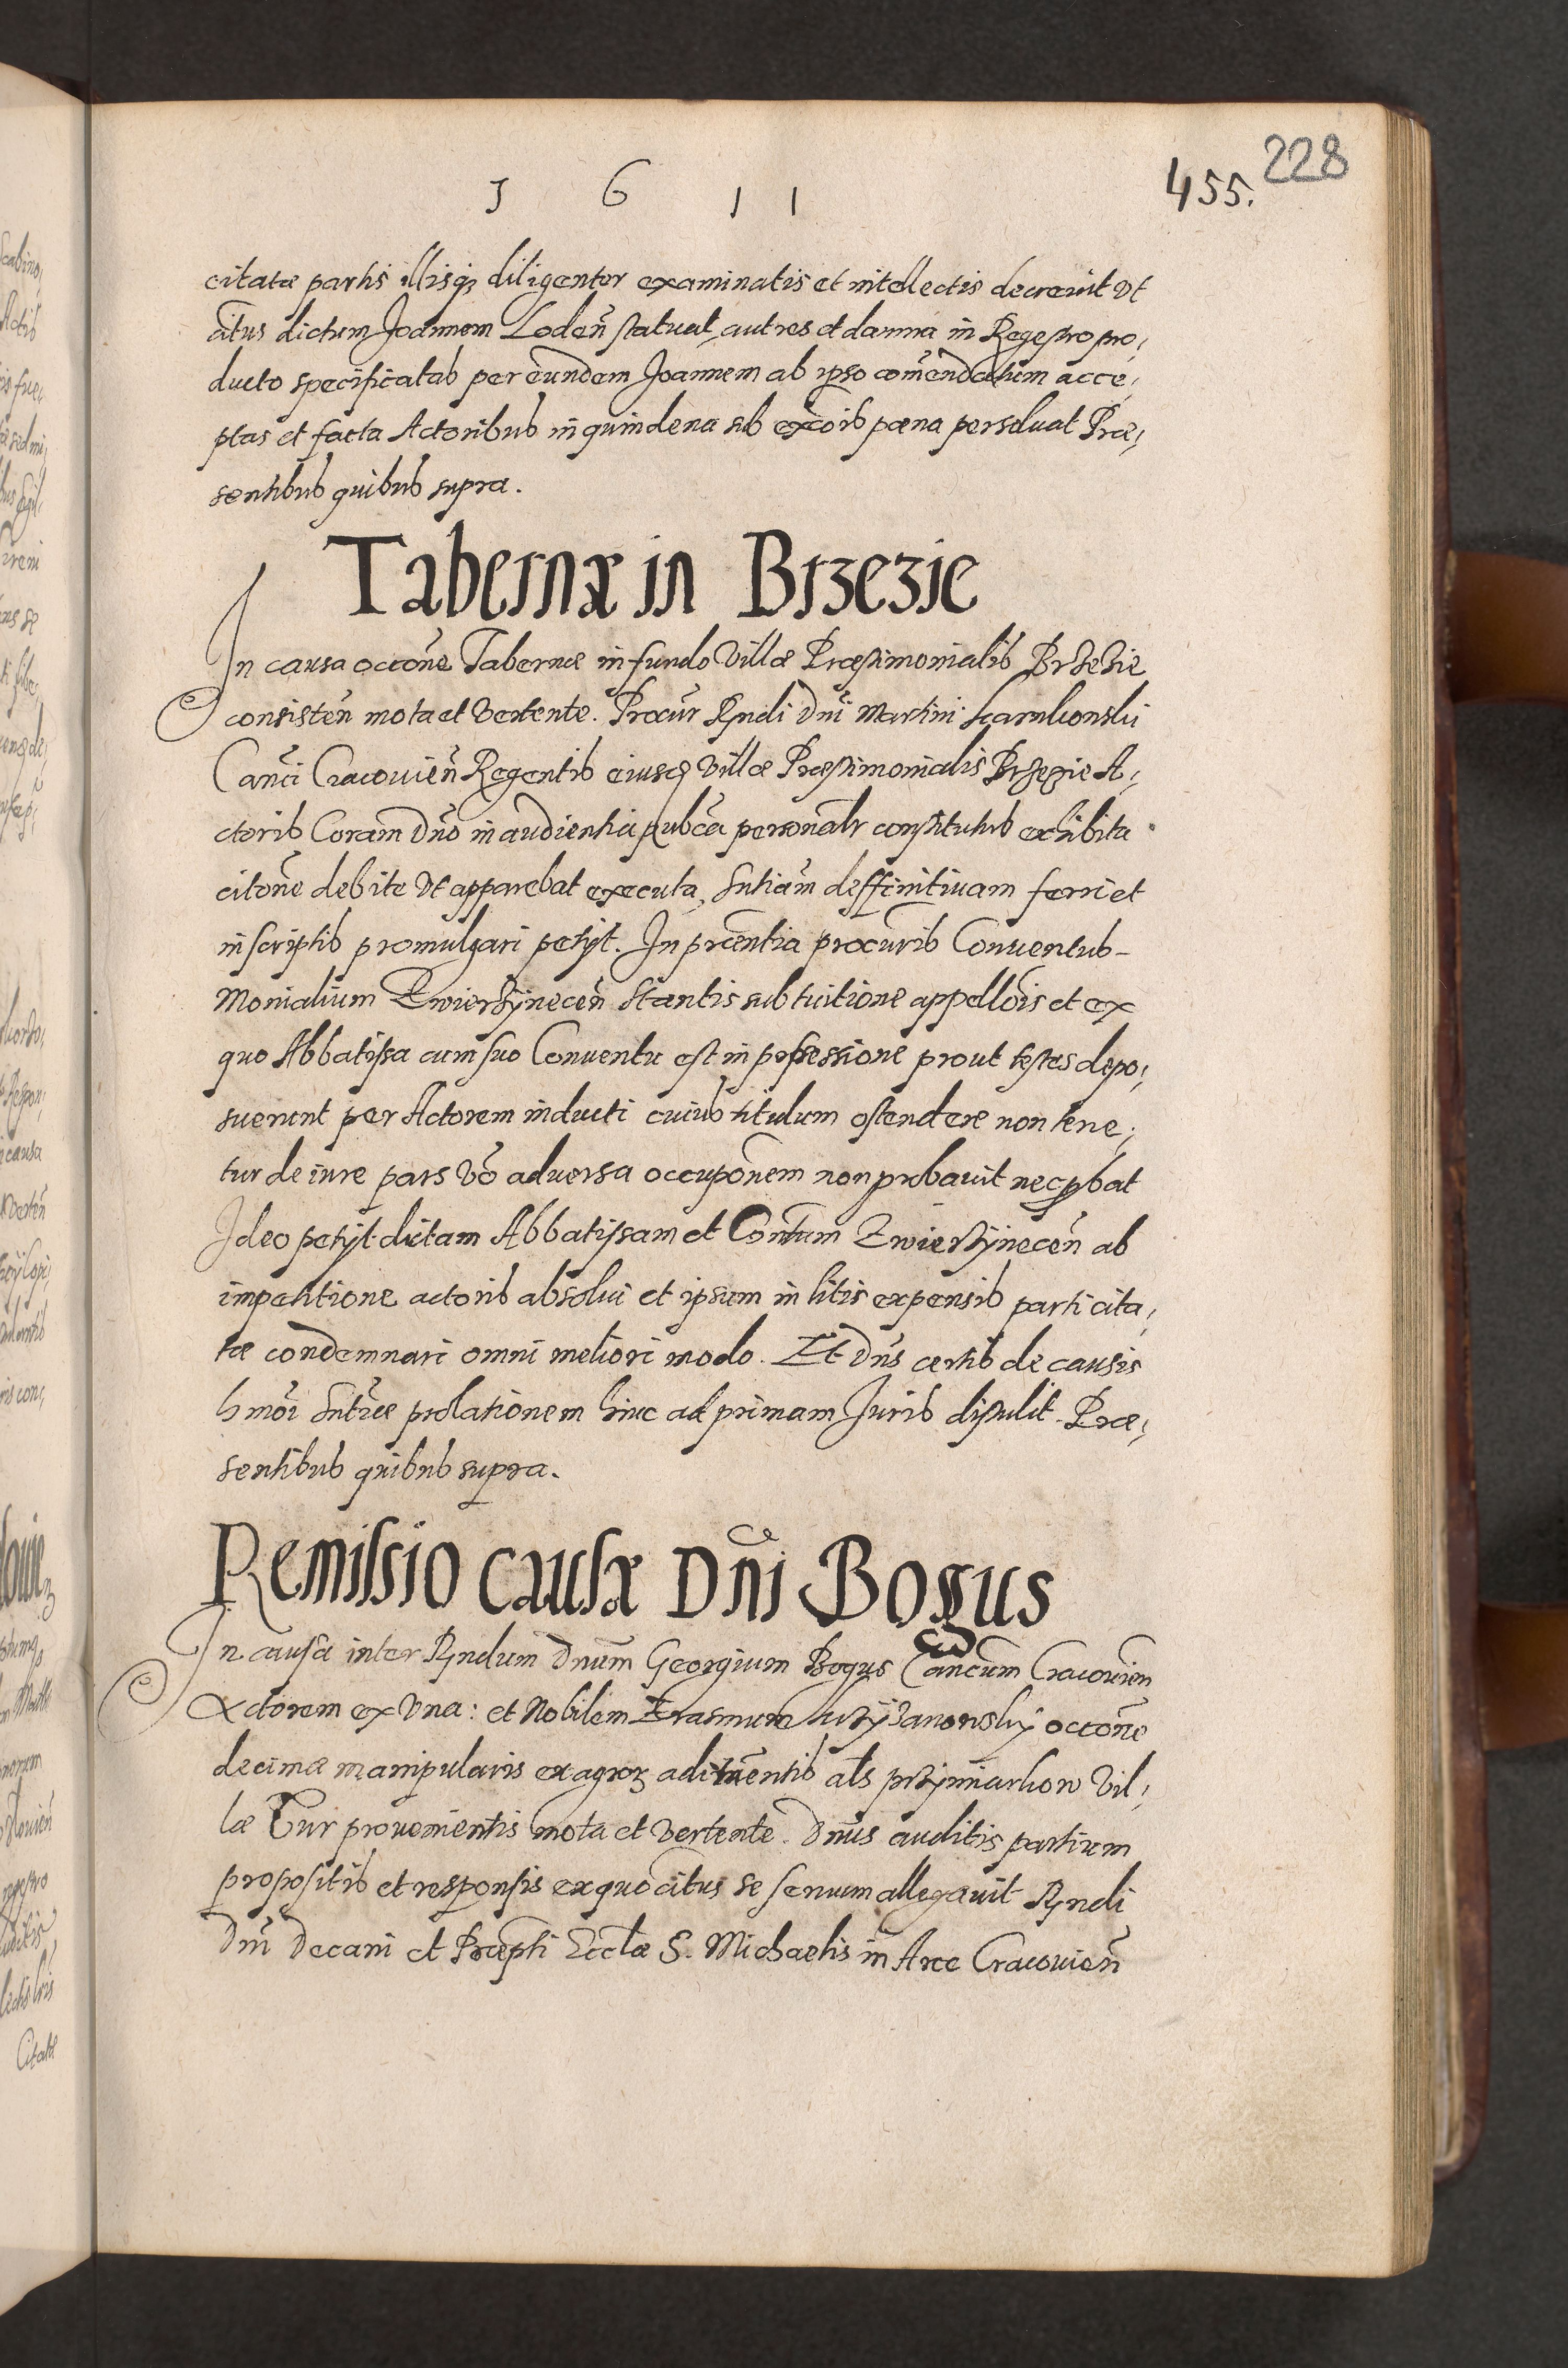 1 6 1 1
455. 228
citatæ partis illisq3 diligenter examinatis et intellectis decrevit vt
citus dictum Joannem Loden̄ statuat, aut res et damna in Regestro pro,
ducto specificatas per eundem Joannem ab ipso com̄endatum acce,
ptas et facta Actoribus in quindena sub excōis pæna persoluat Præ,
sentibus quibus supra.
Tabernæ in Brzezie
In causa occōne Tabernæ in fundo Villæ Præstimonialis Brzezie
consisten̄ mota et vertente. Procur̄ Rn̄di Dn̄i Martini
Canci Cracouien̄ Regentis eiusd villæ Præstimonialis Brzezie A,
ctoris Coram Dn̄o in audientia publca personalr constitutus exhibita
citōne debite vt apparebat executa, Sntiam deffinitiuam ferri et
in scriptis promulgari petijt. In prcentia procuris Conuentus
Monialium Zwierzynecen̄ Stantis sub tuitione appellōis et ex
quo Abbatissa cum suo Conuentu est in possessione prout testes depo,
suerunt per Actorem inducti cuius titulum ostendere non tene,
tur de iure pars vo aduersa occupōnem non probauit nec pbat
Ideo petijt dictam Abbatissam et Contum Zwierzynecen̄ ab
impetitione actoris absolui et ipsum in litis expensis parti cita,
tæ condemnari omni meliori modo. Et Dn̄s certis de causis
hmōi Sntiæ prolationem hinc ad primam Juris distulit. Præ,
sentibus quibus supra.
Remissio causæ Dn̄i Bogus
In causa inter Rn̄dum Dn̄um Georgium Bogus Cancum Cracouien
Actorem ex vna: et Nobilem Erasmum occōne
decimæ manipularis ex agror aditamentis als przymiarkow Vil,
læ Tur prouenientis mota et vertente. Dn̄us auditis partium
propositis et responsis ex quo citus se seruum allegauit Rn̄di
Dn̄i Decani et Præpti Eccłæ S. Michaelis in Arce Cracouien̄